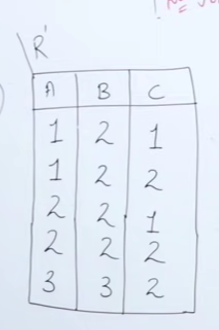 R'
A B C
1 2 1
1 2 2
2 2 1
2 2 2
3 3 2